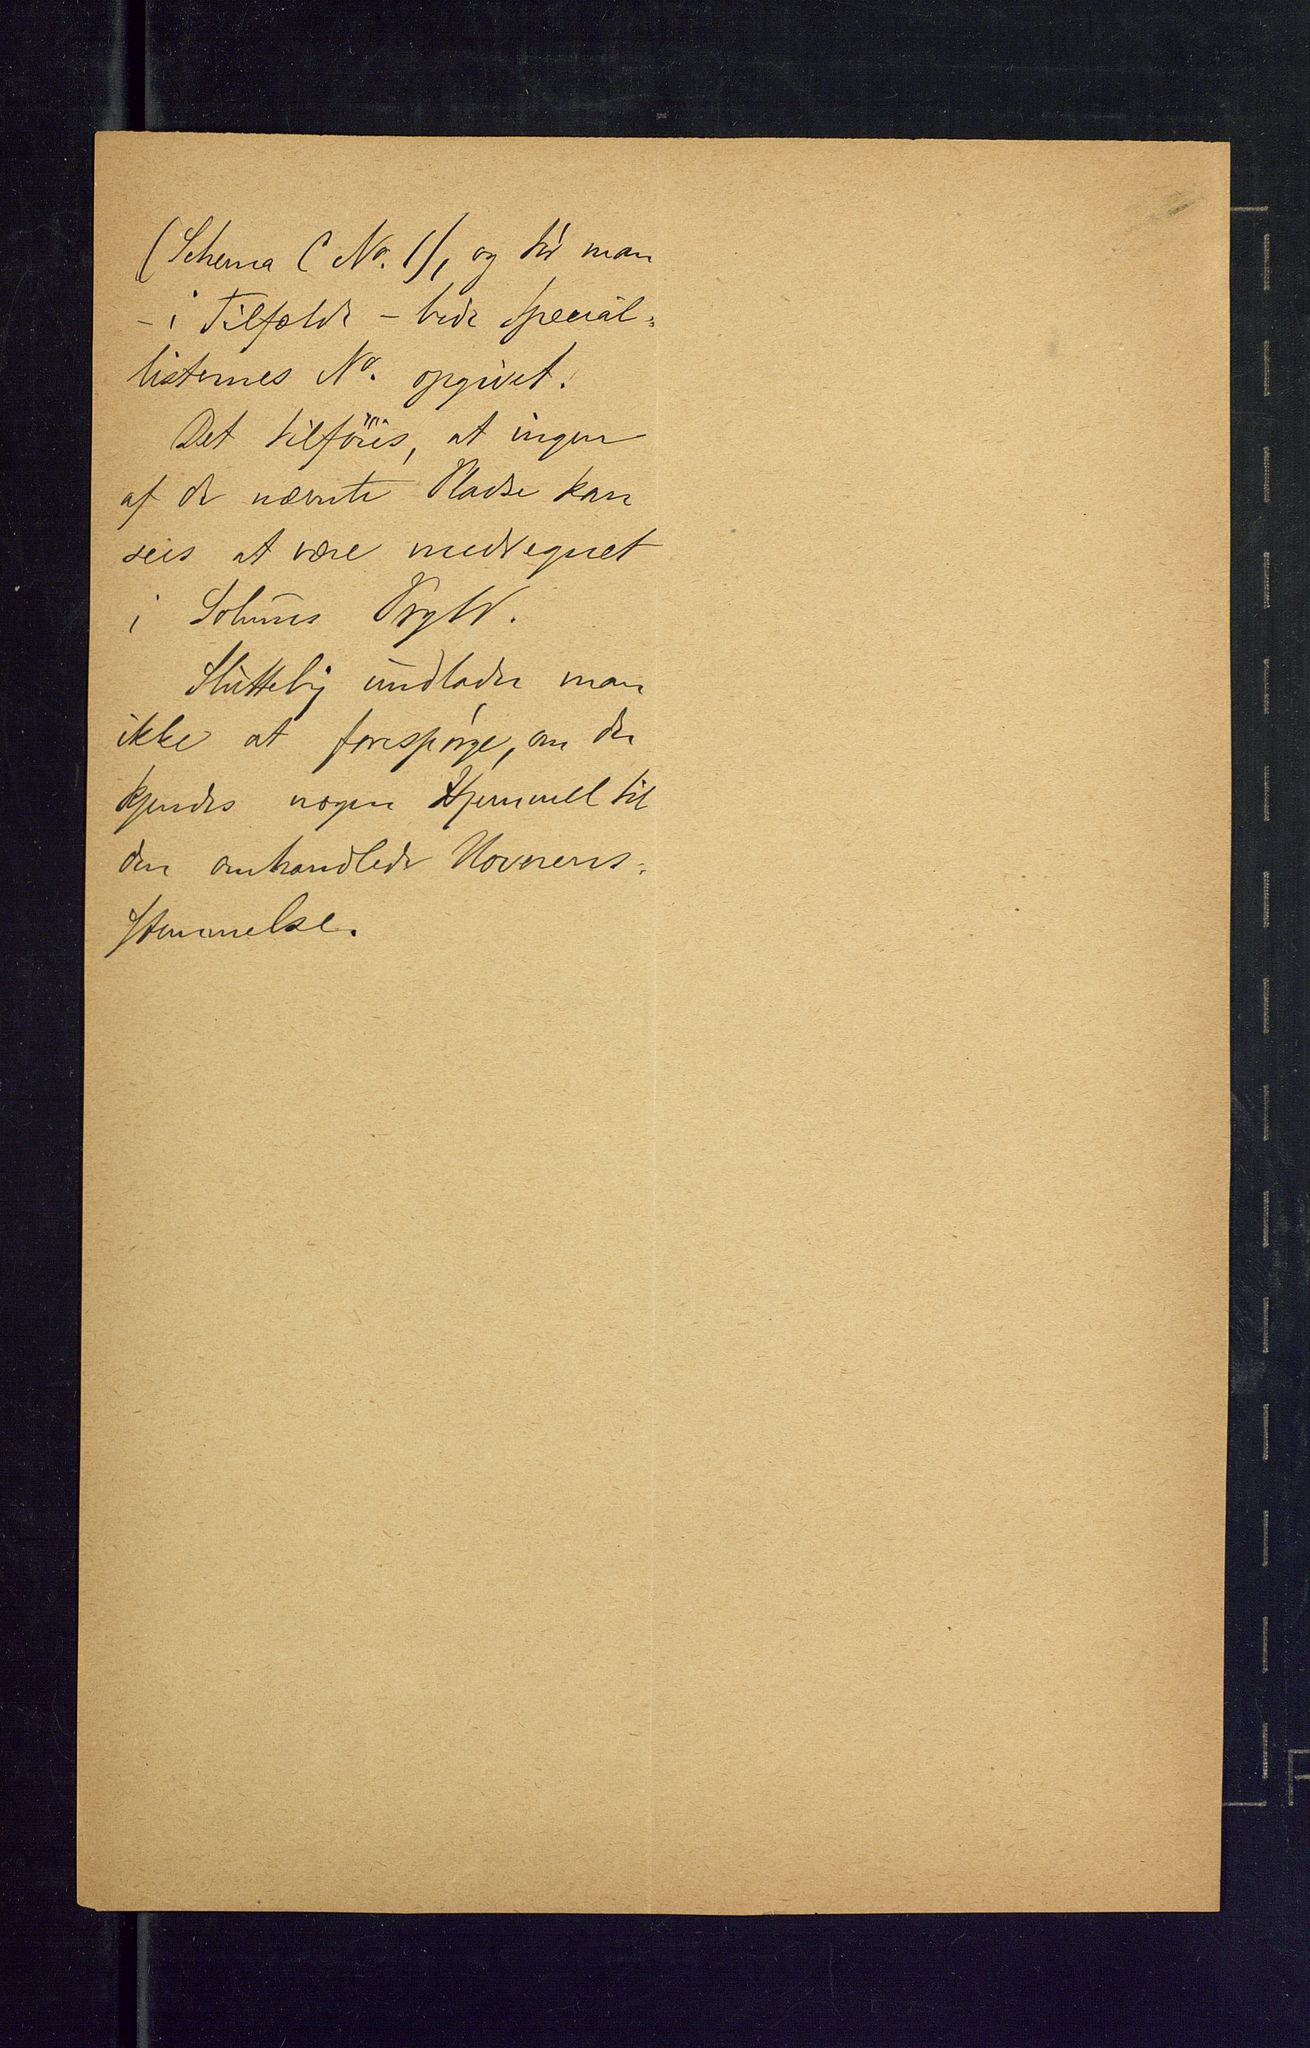 (Schema C No. 1), og tør man
– i Tilfælde – bede Special-
listernes No. opgivet.
Det tilføies, at ingen
af de nævnte Pladse kan
sees at være medregnet
i Solums Prgld.
Sluttelig undlader man
ikke at forespørge, om der
kjendes nogen Hjemmel til
den omhandlede Uoverens-
stemmelse.